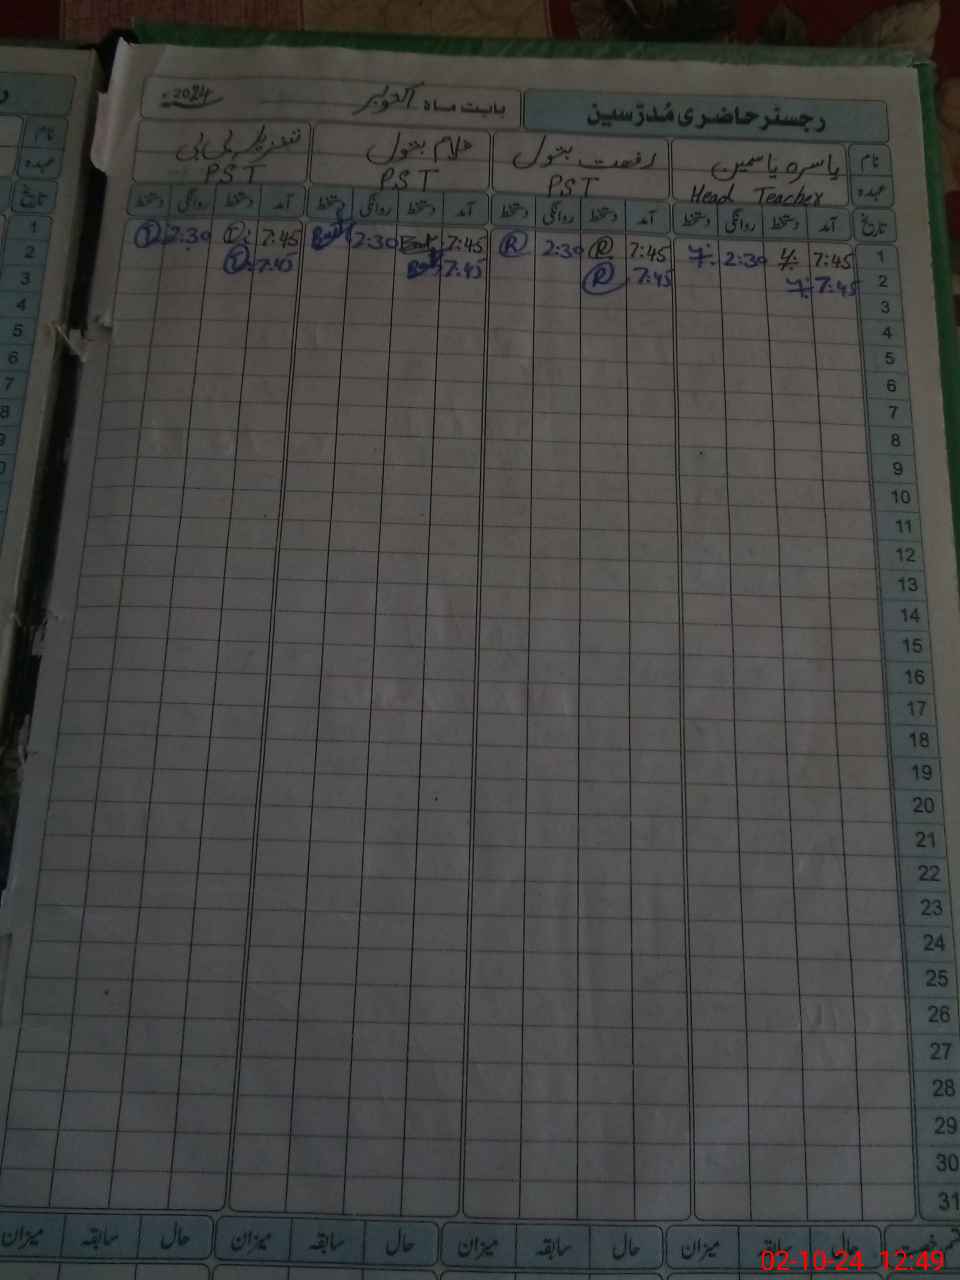 رجسٹر حاضری مُدرّسین بابت ماہ اکتوبر 2024ء
نام یاسرہ یاسمین رفعت بتول غلام بتول بی بی
عہدہ Head Teacher PST PST PST
تاریخ آمد دستخط روانگی دستخط آمد دستخط روانگی دستخط آمد دستخط روانگی دستخط آمد دستخط روانگی دستخط
1 7:45 2:30 7:45 R 2:30 R 7:45 2:30 7:45 2:30
2 7:45 7:45 R 7:45 7:45
3
4
5
6
7
8
9
10
11
12
13
14
15
16
17
18
19
20
21
22
23
24
25
26
27
28
29
30
31
حال سابقہ میزان حال سابقہ میزان حال سابقہ میزان حال سابقہ میزان
نام
عہدہ
تاریخ
1
2
3
4
5
6
7
8
02-10-24 12:49